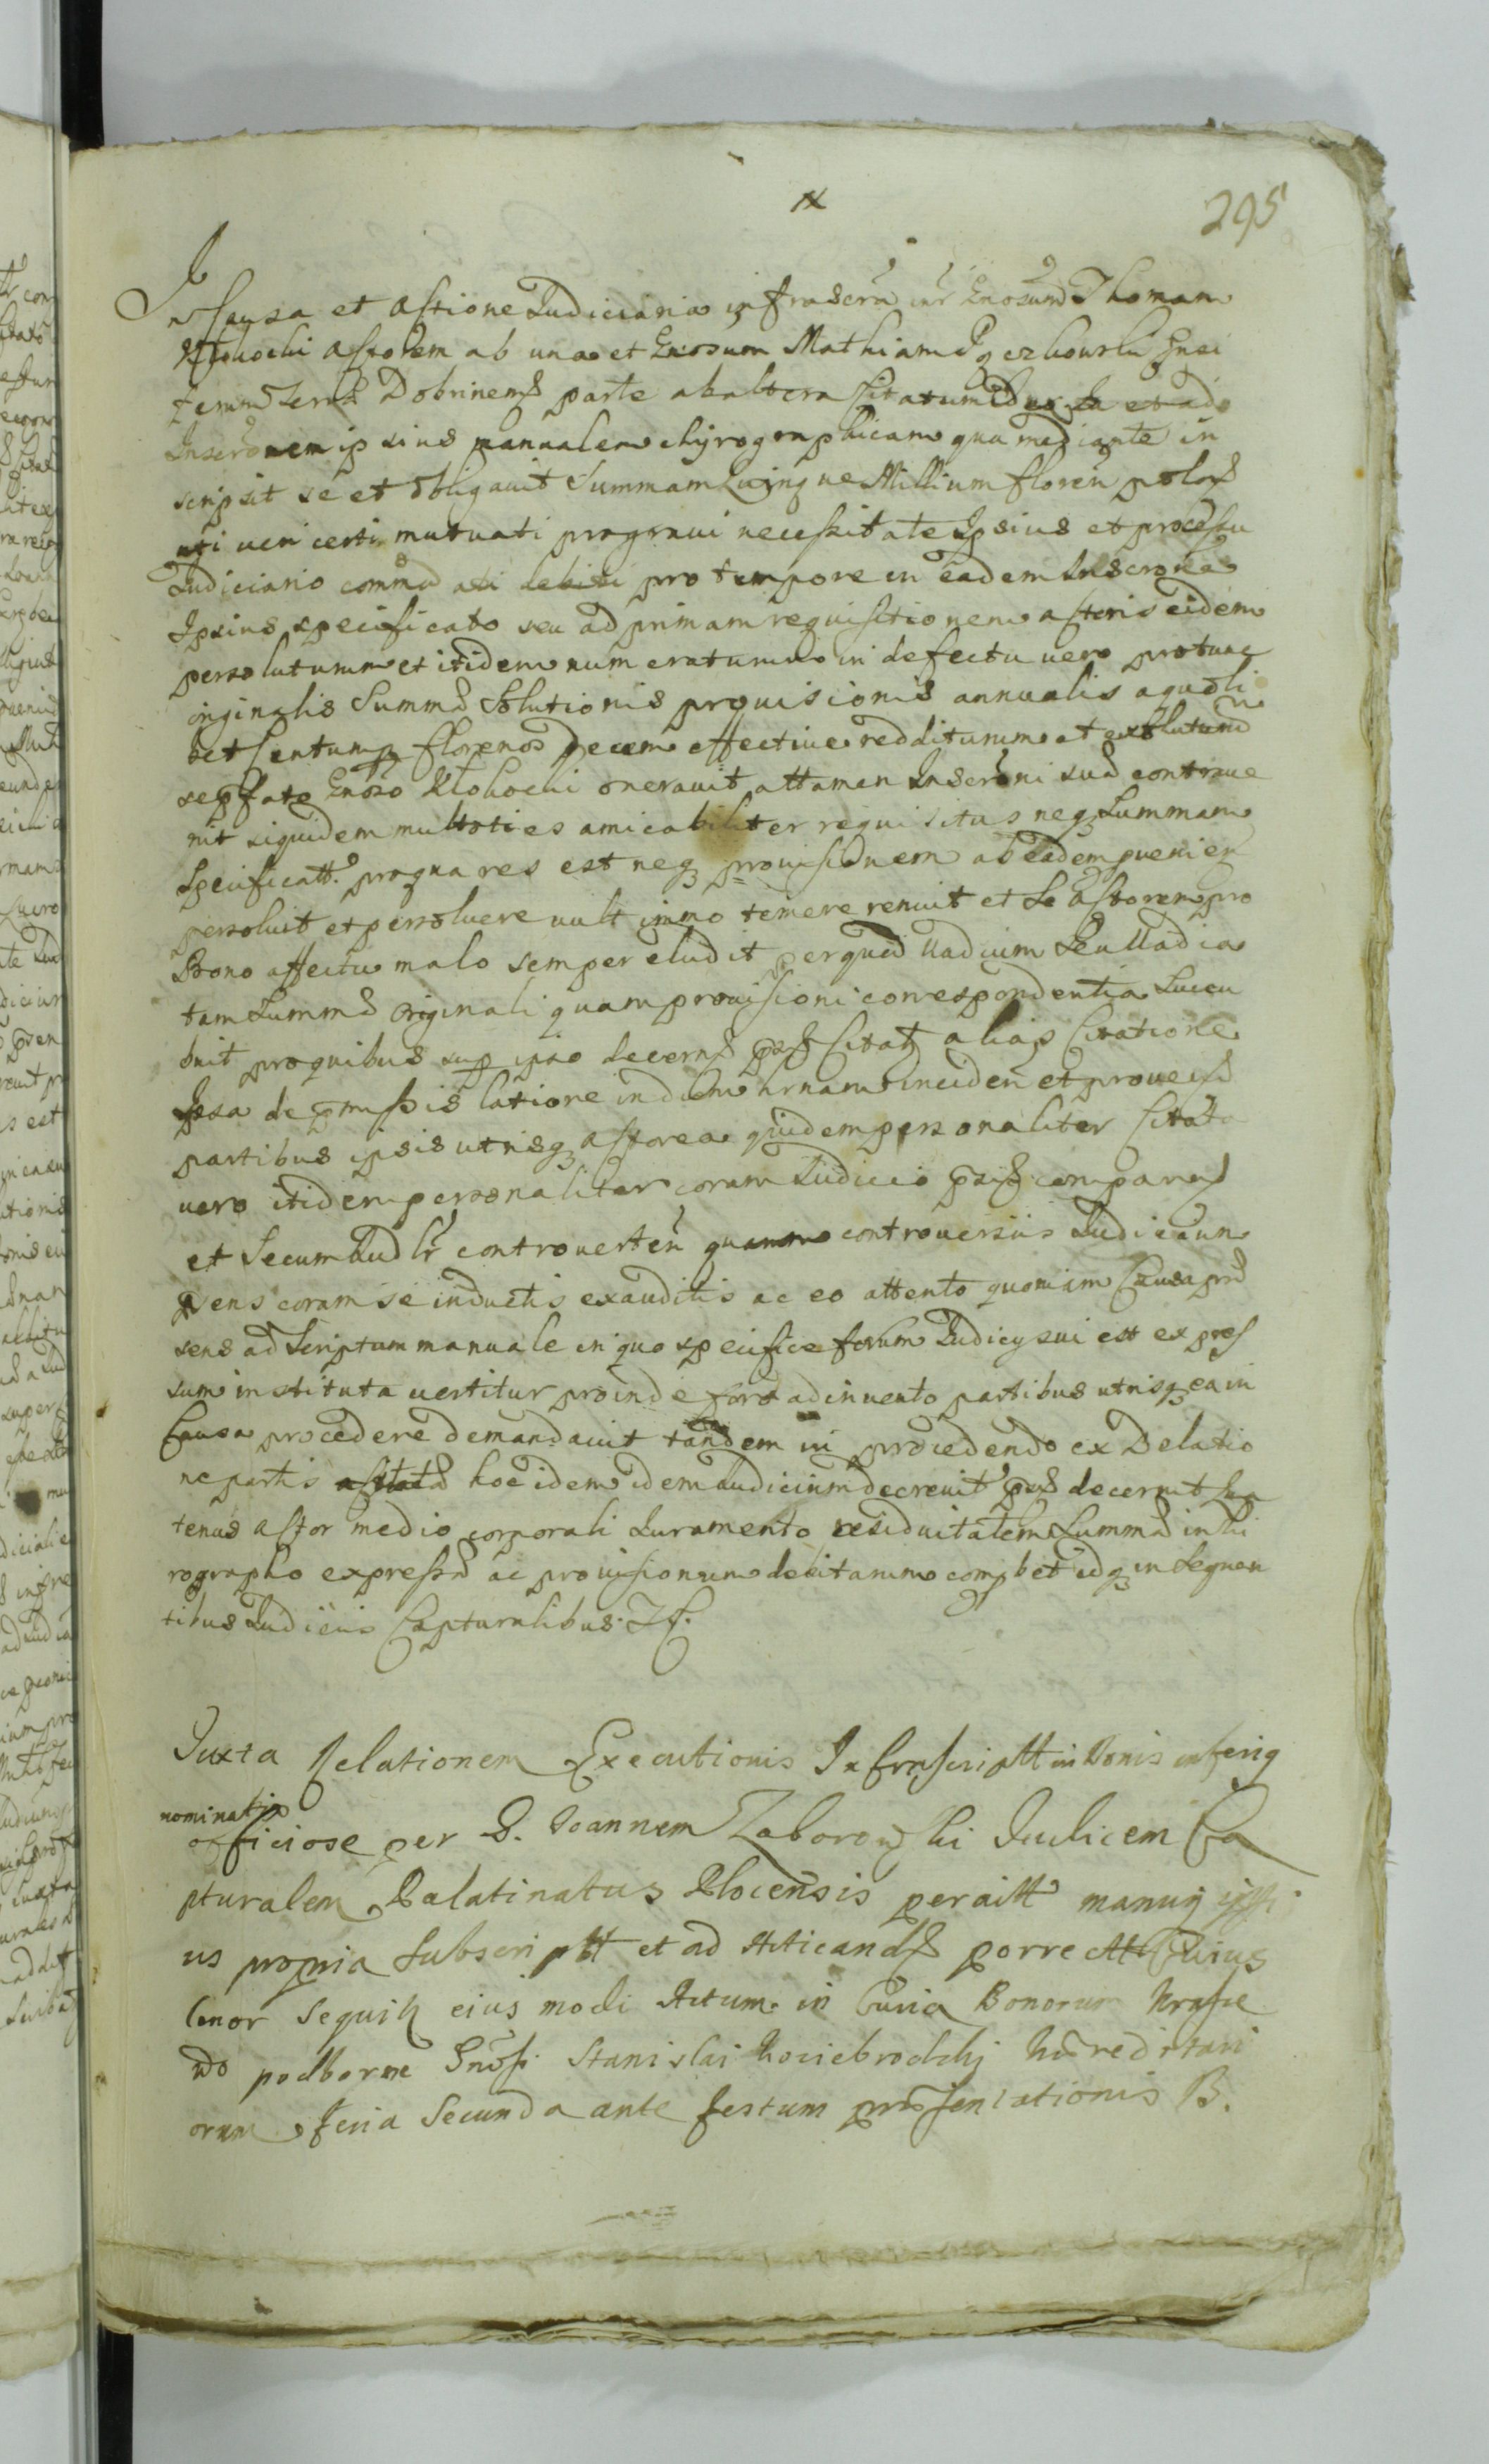 295
In Causa et actione Judiciaria infrascrā inr Gnosum Thomam
Klobocki actorem ab una et Gnosum Mathiam Gnsi
Terrae Dobrinens parte ab altera Citatum id ad
Inscronem ipsius manualem chyrographicam qua mediante in
scripsit se et obligavit Summam Quinque Millium floren polos
uti veri certi mutuati pro gravi necessitate Ipsius et processu
Judiciario debiti pro tempore in eadem Inscrone
Ipsius specificato seu ad primam requisitionem actoris eidem
persoluturum et itidem numeraturum in defectu vero protunc
originalis Summae Solutionis provisionis annualis a quoli
bet Centum florenos Decem effective redditurum et exoluturum
se pfato Gnoso Klobocki oneravit attamen Inscroni suae contrave
nit siquidem multoties amicabiliter requisitus neq Summam
Specificatt. pro qua res est neq provisionem ab eadem pvenien
persoluit et persoluere uult immo temere renuit et Se actorem pro
Bono affectu malo semper eludit per quod Vadium Seu Vadia
tam Summae originali quam provisioni correspondentia Succu
buit pro quibus sup ipso decerns Citat alias Citatione
Ipsa de pmissis latiore in diem hrnam inciden et proven
partibus ipsis utrisq actorea quidem personaliter Citata
vero itidem personaliter coram Judicio comparens
et Secum Judlr controverten quarum controversiis Judicium
psens coram se inductis exauditis ac eo attento quoniam Causa prae
sens ad Scriptum manuale in quo specifice forum Judicy sui est expres
sum instituta vertitur proinde foro adinvento partibus utrisq ea in
Causa procedere demandavit tandem in procedendo ex Delatio
ne partis hoc idem idem Judicium decrevit decernit Qua
tenus actor medio corporali Juramento residuitatem Summae in Chi
rographo expressae ac provisionum debitarum compbet idq in Sequen
tibus Judiciis Capturalibus.
Juxta Relationem Executionis Infrascriptt in Bonis inferiq
nominatis
officiose per D. Joannem Zaborowski Judicem Ca
pturalem Palatinatus Plocensis peractt manuq ipsi
us propria Subscriptt et ad Acticands porrectt Cuius
tenor Sequitq eius modi Actum in Curia Bonorum
wo podborne Gnosi Stanislai Kociebrodzkj haereditari
orum Feria Secunda ante festum praesentationis B.